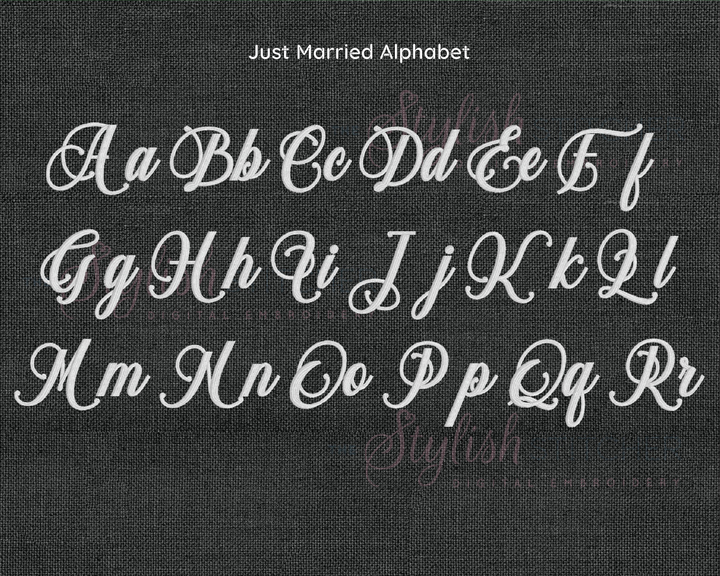 Just Married Alphabet
Stylish
Aa Bb Cc Dd Ee Ff
Gg Hh Ii Jj Kk Ll
Stylish
DIGITAL EMBROIDERY
Mm Nn Oo Pp Qq Rr
Stylish
DIGITAL EMBROIDERY